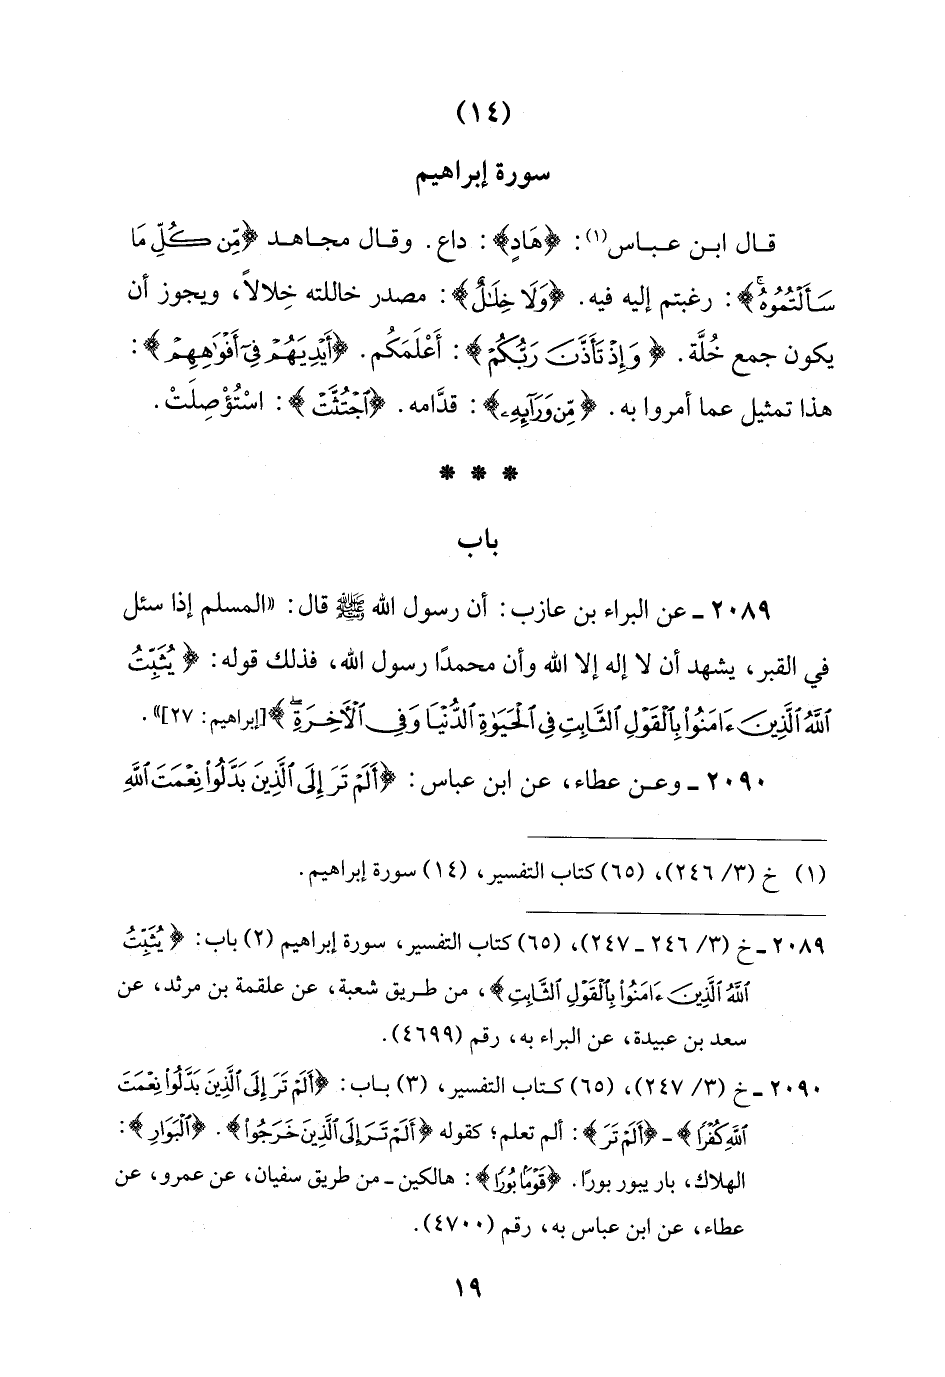 (١٤)
سورة إبراهيم
قال ابن عباس(١): ﴿هَادٍ﴾: داع. وقال مجاهد ﴿مِّن كُلِّ مَا
سَأَلْتُمُوهُ﴾: رغبتم إليه فيه. ﴿وَلَا خِلَٰلٌ﴾: مصدر خاللته خِلالاً، ويجوز أن
يكون جمع خُلَّة. ﴿وَإِذْ تَأَذَّنَ رَبُّكُمْ﴾: أَعْلَمَكُم. ﴿أَيْدِيَهُمْ فِىٓ أَفْوَٰهِهِمْ﴾:
هذا تمثيل عما أمروا به. ﴿مِّن وَرَآئِهِۦ﴾: قدَّامه. ﴿ٱجْتُثَّتْ﴾: اسْتُؤْصِلَتْ.
* * *
باب
٢٠٨٩ ـ عن البراء بن عازب: أن رسول الله ﷺ قال: «المسلم إذا سئل
في القبر، يشهد أن لا إله إلا الله وأن محمدًا رسول الله، فذلك قوله: ﴿يُثَبِّتُ
ٱللَّهُ ٱلَّذِينَ ءَامَنُوا۟ بِٱلْقَوْلِ ٱلثَّابِتِ فِى ٱلْحَيَوٰةِ ٱلدُّنْيَا وَفِى ٱلْءَاخِرَةِ ۖ﴾[إبراهيم: ٢٧]».
٢٠٩٠ ـ وعن عطاء، عن ابن عباس: ﴿أَلَمْ تَرَ إِلَى ٱلَّذِينَ بَدَّلُوا۟ نِعْمَتَ ٱللَّهِ
(١) خ (٣/ ٢٤٦)، (٦٥) كتاب التفسير، (١٤) سورة إبراهيم.
٢٠٨٩ ـ خ (٣/ ٢٤٦ ـ ٢٤٧)، (٦٥) كتاب التفسير، سورة إبراهيم (٢) باب: ﴿يُثَبِّتُ
ٱللَّهُ ٱلَّذِينَ ءَامَنُوا۟ بِٱلْقَوْلِ ٱلثَّابِتِ﴾، من طريق شعبة، عن علقمة بن مرثد، عن
سعد بن عبيدة، عن البراء به، رقم (٤٦٩٩).
٢٠٩٠ ـ خ (٣/ ٢٤٧)، (٦٥) كتاب التفسير، (٣) باب: ﴿أَلَمْ تَرَ إِلَى ٱلَّذِينَ بَدَّلُوا۟ نِعْمَتَ
ٱللَّهِ كُفْرًا﴾ ـ ﴿أَلَمْ تَرَ﴾: ألم تعلم؛ كقوله ﴿أَلَمْ تَرَ إِلَى ٱلَّذِينَ خَرَجُوا۟﴾. ﴿ٱلْبَوَارِ﴾:
الهلاك، بار يبور بورًا. ﴿قَوْمًۢا بُورًا﴾: هالكين ـ من طريق سفيان، عن عمرو، عن
عطاء، عن ابن عباس به، رقم (٤٧٠٠).
١٩